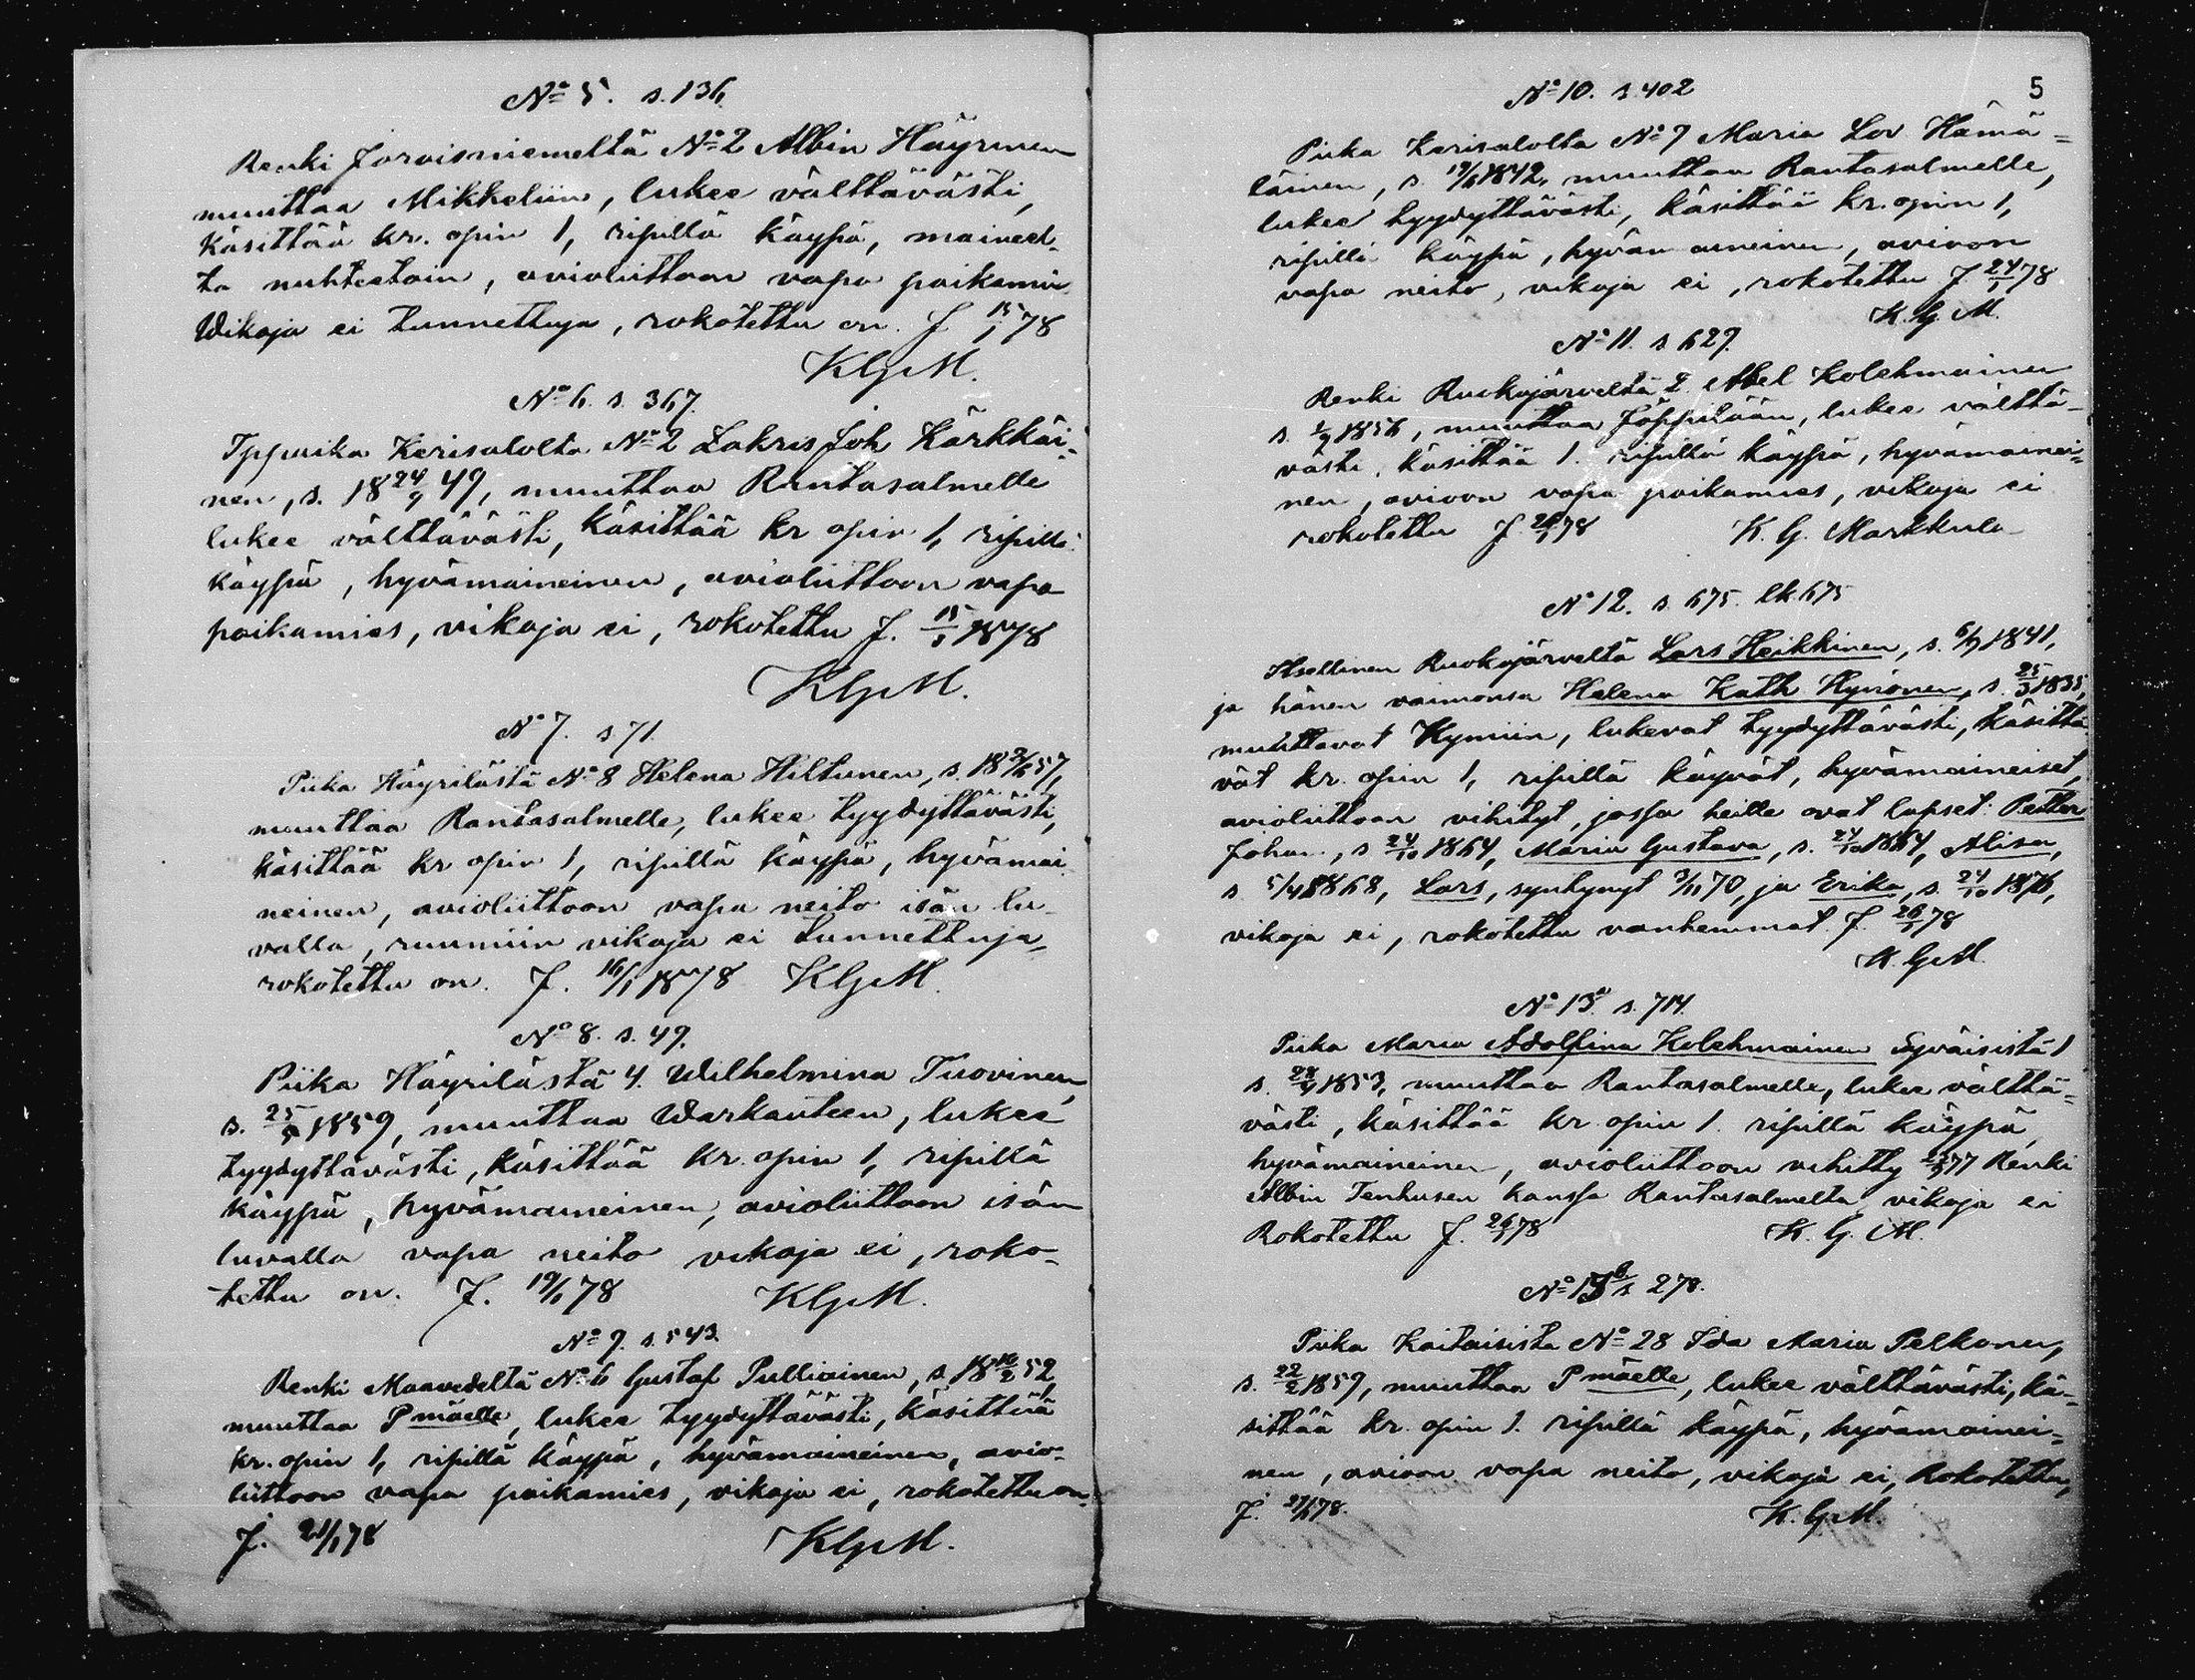 No 5. s. 136
Renki Joroisniemeltä No 2 Albin Häyrinen
muuttaa Mikkeliin, lukee välttävästi,
käsittää kr. opin 1, ripillä käypä, maineel-
ta nuhteetoin, avioliittoon vapa poikamies
Wikoja ei tunnettuja, rokotettu on. J 15/1 78
KGM.
No 6. s. 367.
Kerisalolta No 2 Zakris Joh Kärkkäi-
nen, s. 18 24/9 49, muuttaa Rantasalmelle
lukee välttävästi, käsittää kr opin 1, ripillä
käypä, hyvämaineinen, avioliittoon vapa
poikamies, vikoja ei, rokotettu J. 15/1 1878
KGM.
No 7. s 71.
Piika Häyrilästä No 8 Helena Hiltunen, s. 18 57,
muuttaa Rantasalmelle, lukee tyydyttävästi,
käsittää kr opin 1, ripillä käypä, hyvämai
neinen, avioliittoon vapa neito isän lu-
valla, ruumiin vikoja ei tunnettuja,
rokotettu on. J. 16/1 1878 KGM.
No 8. s. 49.
Piika Häyrilästä 4. Wilhelmina Tuovinen,
s. 25 1859, muuttaa Warkauteen, lukee
tyydyttävästi, käsittää kr. opin 1, ripillä
käypä, hyvämaineinen, avioliittoon isän
luvalla vapa neito vikoja ei, roko-
tettu on. J. 19/1 78 KGM.
No 9. s. 543.
Renki Maavedeltä No 6 Gustaf Pulliainen, s. 18 16/2 52
muuttaa Pmäelle, lukee tyydyttävästi, käsittää
kr. opin 1, ripillä käypä, hyvämaineinen, avio-
liittoon vapa poikamies, vikoja ei, rokotettu on.
J. 21/1 78 KGM.
5
No 10. s. 402
Piika Kerisalolta No 7 Maria Lov Hämä-
läinen, s. 1842, muuttaa Rantasalmelle,
lukee tyydyttävästi, käsittää kr. opin 1,
ripillä käypä, hyvän aineinen, avioon
vapa neito, vikoja ei, rokotettu J 24/1 78
K. G. M.
No 11. s. 627.
Renki Ruokojärveltä 2. Abel Kolehmainen
s. 1/9 1856, muuttaa Jäppilään, lukee välttä-
västi, käsittää 1. ripillä käypä, hyvämainei-
nen, avioon vapa poikamies, vikoja ei
rokotettu J. 26/1 78 K. G. Markkula
No 12. s. 675. lk. 675
Itsellinen Ruokojärveltä Lars Heikkinen, s. 6/9 1841,
ja hänen vaimonsa Helena Kath Hyvönen, s. 25/3 1835,
muuttavat Kymiin, lukevat tyydyttävästi, käsittä
vät kr. opin 1, ripillä käyvät, hyvämaineiset,
avioliittoon vihityt, jossa heille ovat lapset: Petter
Johan, s 24/10 1864, Maria Gustava, s. 24/10 1864, Alisa,
s 5/4 1868, Lars, syntynyt 3/11 70, ja Erika, s. 24/10 1876,
vikoja ei, rokotettu vanhemmat. J. 26/1 78
K. G. M.
No 13 a s. 714.
Piika Maria Adolfina Kolehmainen Syväisistä 1
s. 1853, muuttaa Rantasalmelle, lukee välttä-
västi, käsittää kr. opin 1. ripillä käypä,
hyvämaineinen, avioliittoon vihitty 77 Renki
Albin Tenhusen kanssa Rantasalmelta vikoja ei
Rokotettu J. 26/1 78 K. G. M.
No 13 b s 278.
Piika Kaitaisista No 28 Ida Maria Pelkonen,
s. 22/2 1859, muuttaa Pmäelle, lukee välttävästi, kä-
sittää kr. opin 1. ripillä käypä, hyvämainei-
nen, avioon vapa neito, vikoja ei, Rokotettu,
J. 27/1 78. K. G. M.